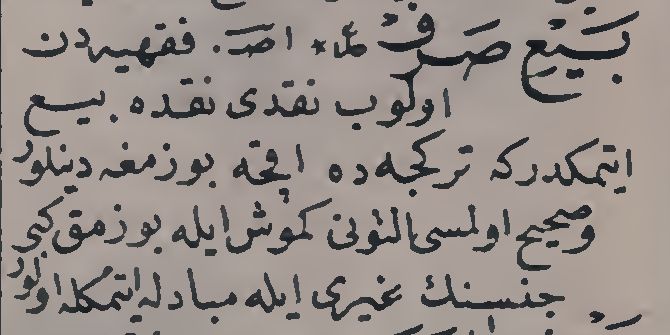 بَيْع صَرف اصـ. فقهيه دن
اولوب نقدى نقده بيع
ايتمكدركه تركجه ده اقچه بوزمغه دينلور
وصحيح اولمسى التونى كموش ايله بوزمق كبى
جنسنك غيرى ايله مبادله ايتمكله اولور